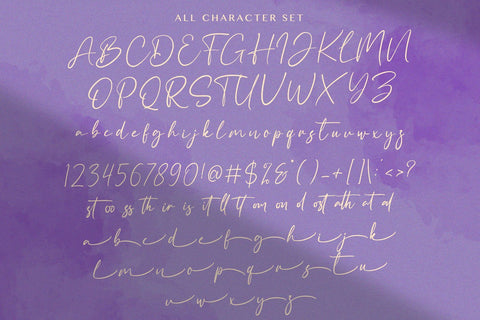 ALL CHARACTER SET
ABCDEFGHIJKLMN
OPQRSTUVWXYZ
abcdefghijklmnopqrstuvwxyz
1234567890!@#$%&*()_+[]\:<>?
st oo ss th ir is it ll tt om on
a b c d e f g h i j k
l m n o p q r s t u
v w x y z